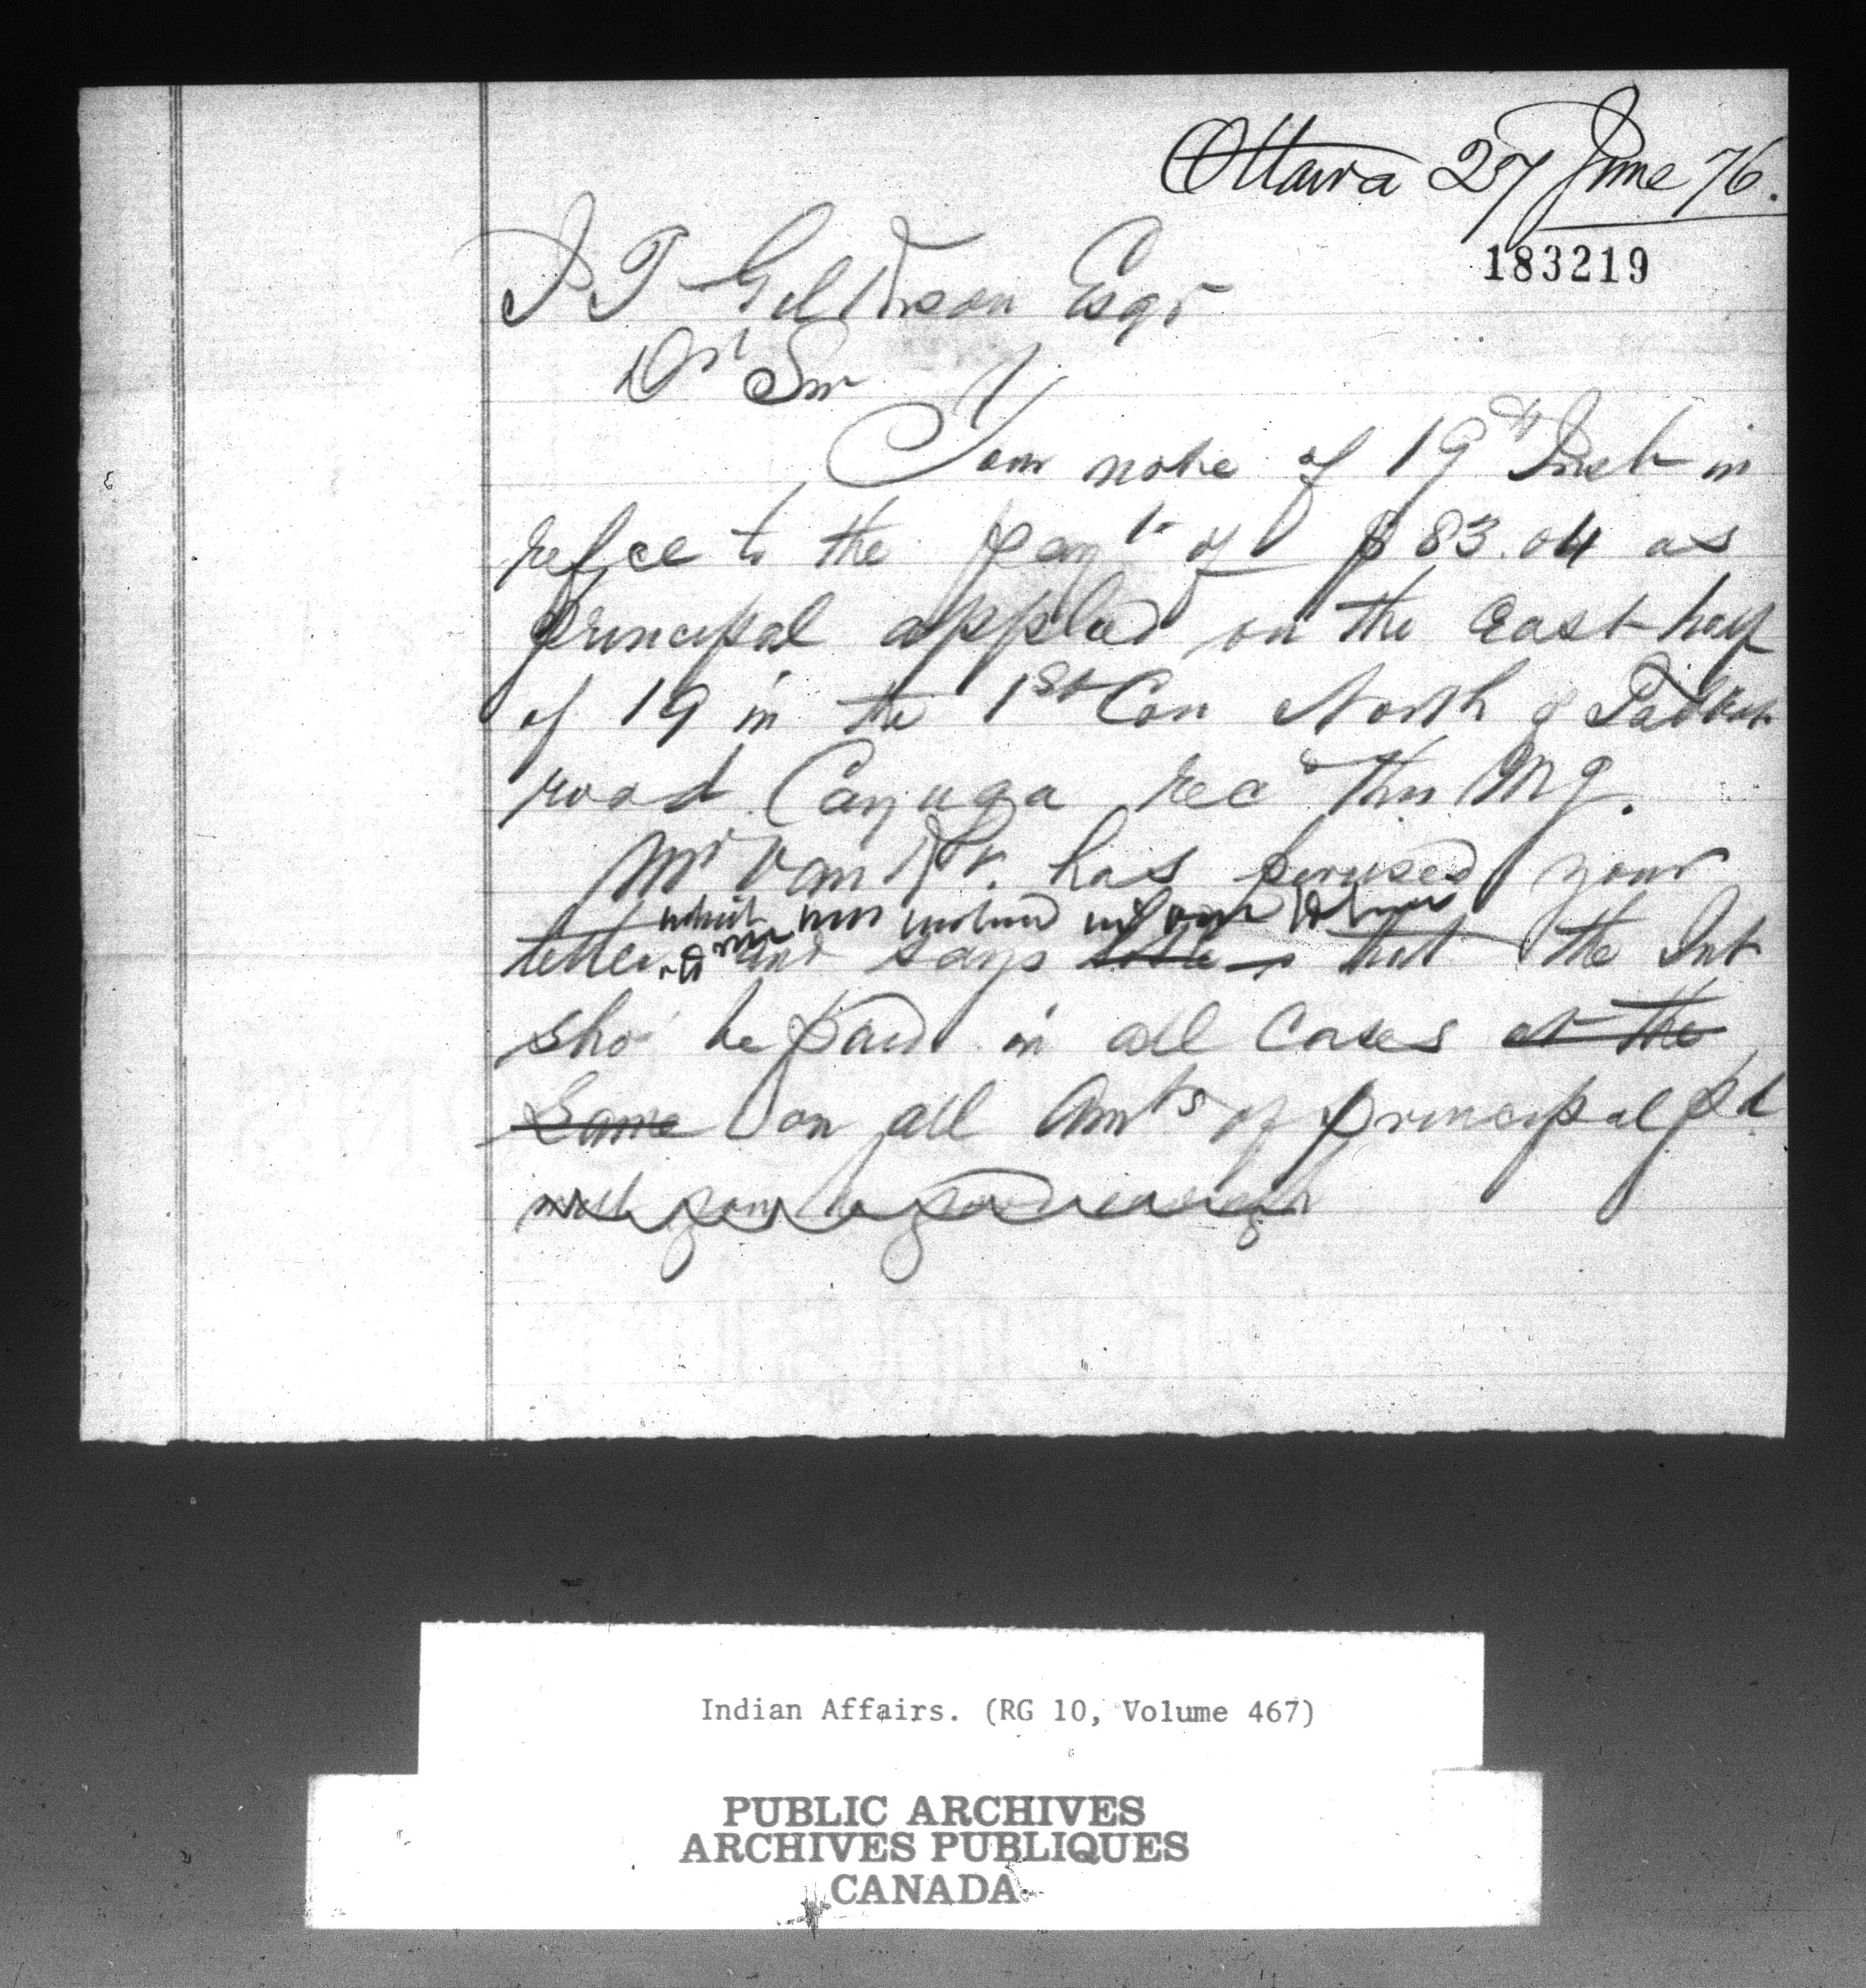 Ottawa 27 June 76.
183219
J T Gilkison Esqr
Dr Sir
Your note of 19th Inst in
refce to the payt of $83.04 as
principal applied on the East half
of 19 in the 1st Con North of Talbot
road Cayuga recd this Mg.
Mr Van K. has perused your
which was
letter and says that the Int
shd be paid in all Cases at the
Same on all Amts of principal pd
Indian Affairs. (RG 10, Volume 467)
PUBLIC ARCHIVES
ARCHIVES PUBLIQUES
CANADA